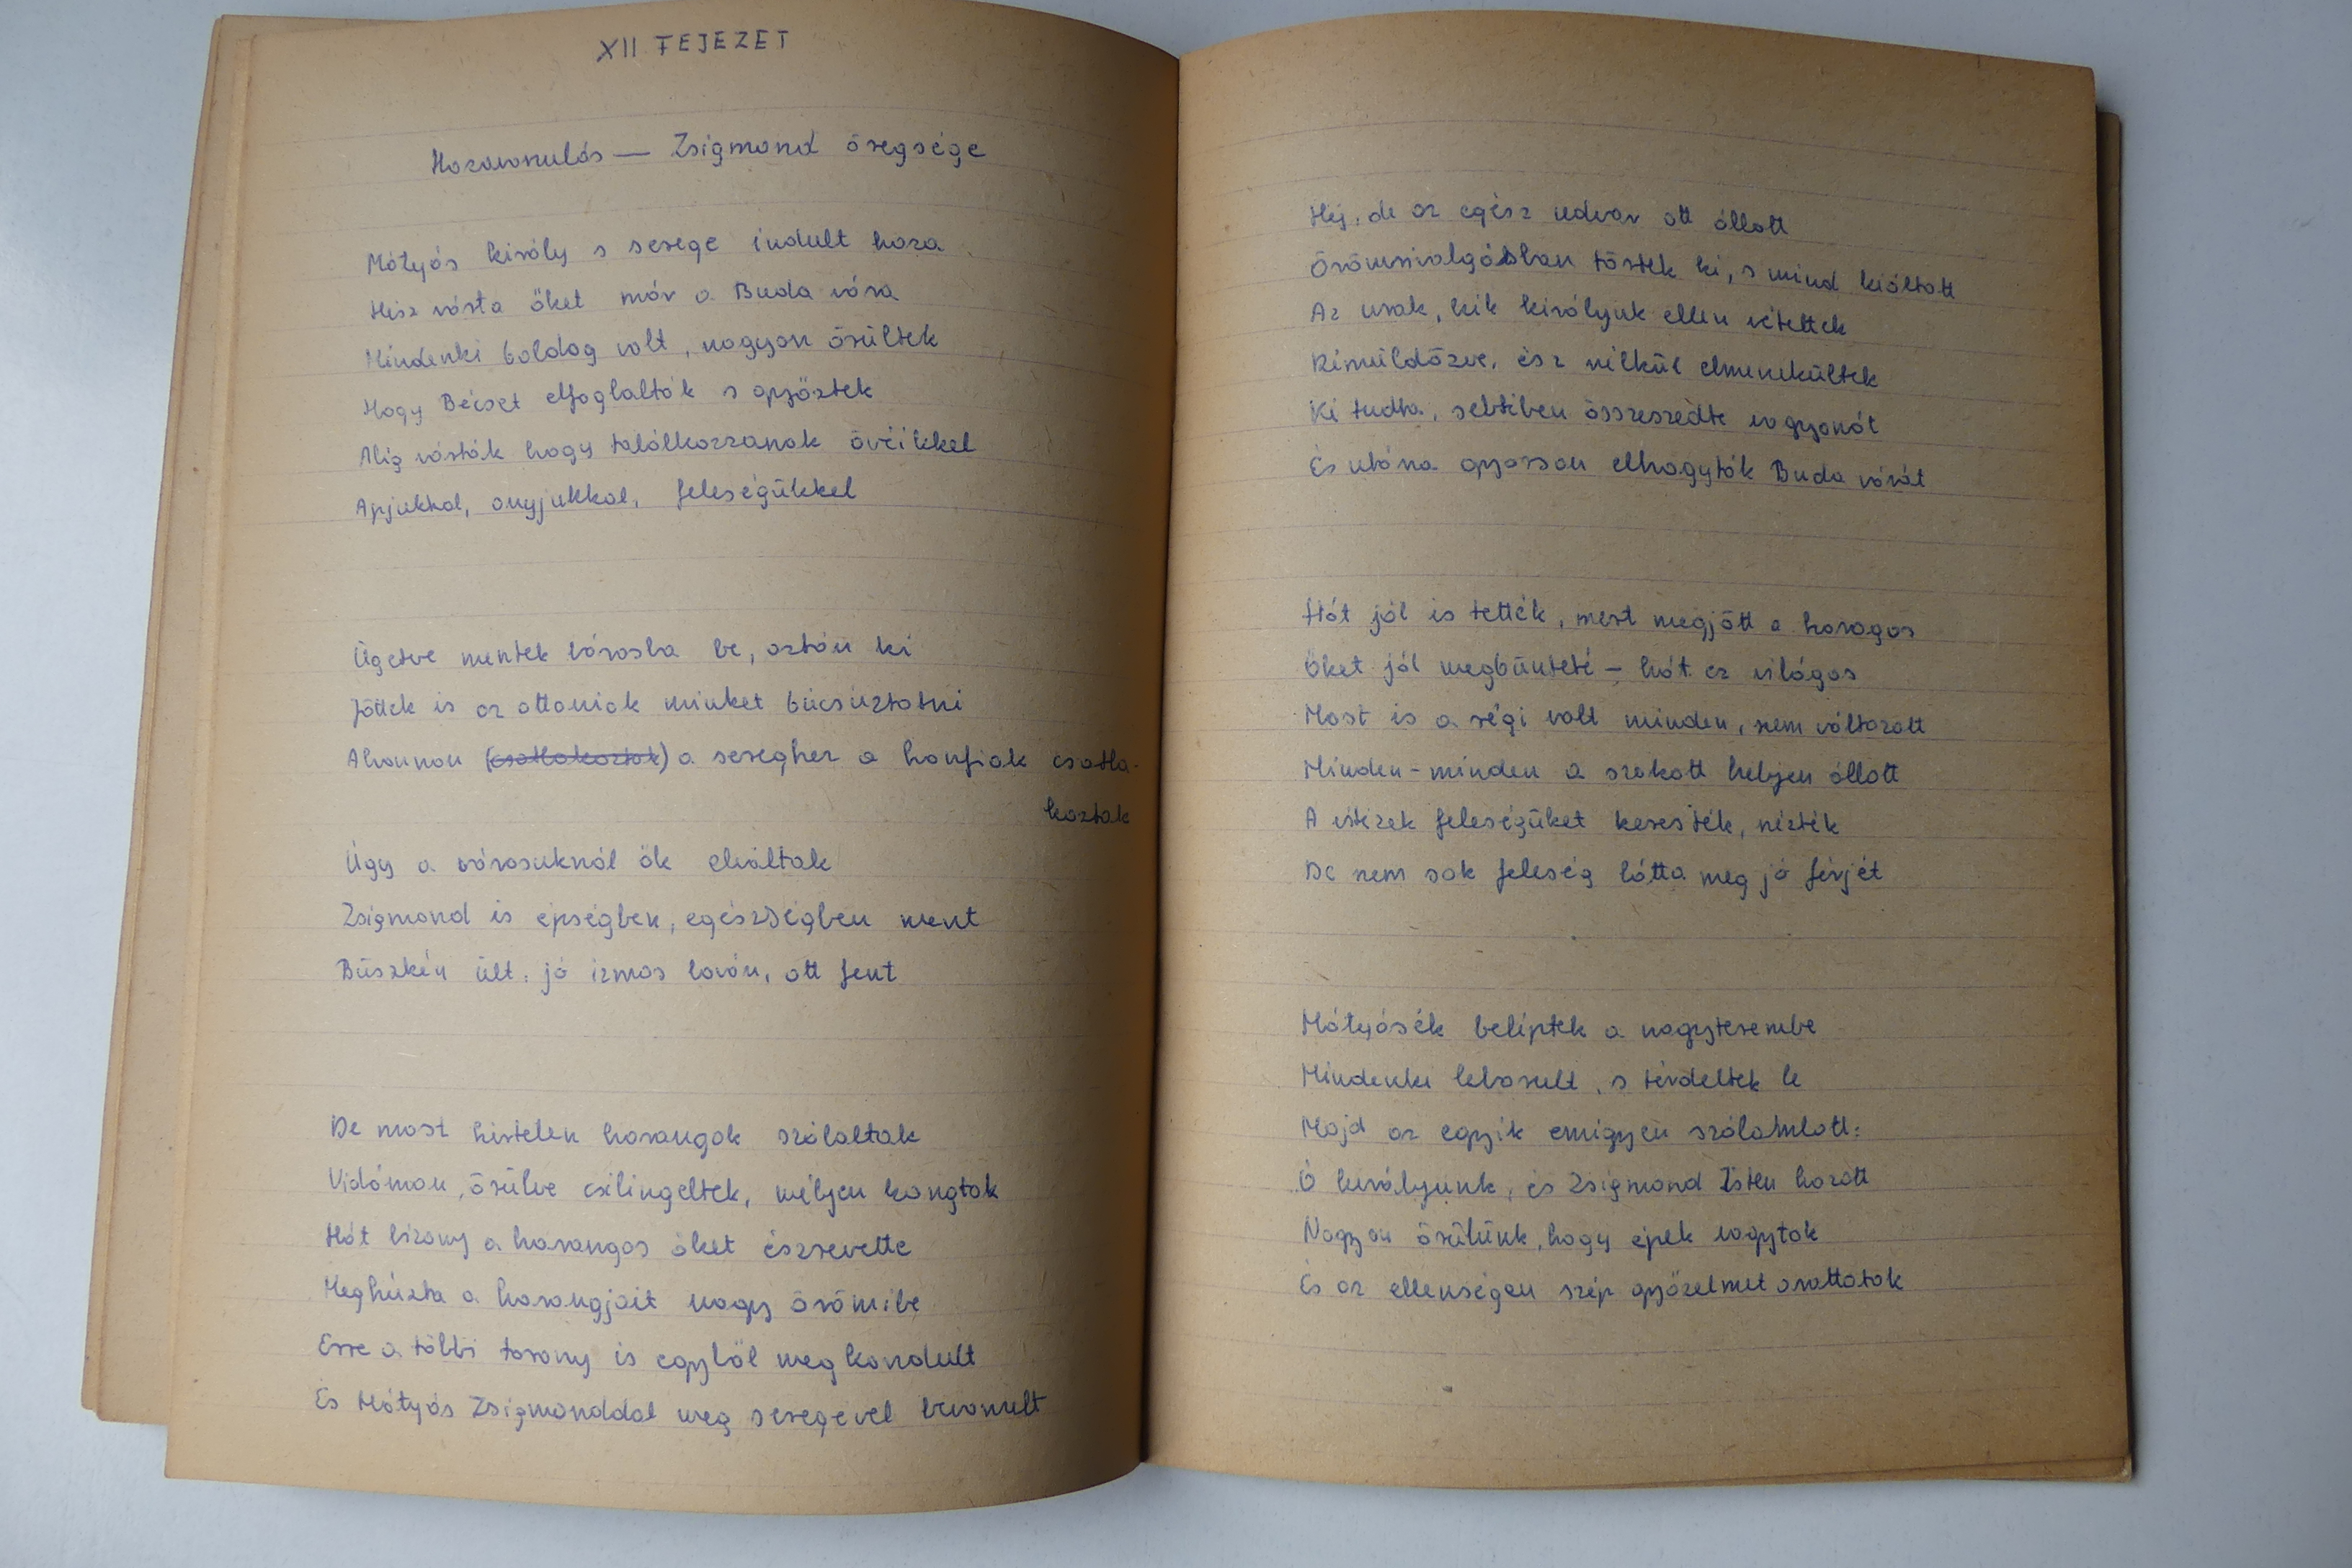 XII FEJEZET
Hazavonulás — Zsigmond öregsége
Mátyás király s serege indult haza
Hisz várta őket már a Buda vára
Mindenki boldog volt, nagyon örültek
Hogy Bécset elfoglalták s győztek
Alig várták hogy találkozzanak övéikkel
Apjukkal, anyjukkal, feleségükkel
Ügetve mentek városba be, aztán ki
Jöttek is az ottaniak minket búcsúztatni
Ahonnan (csatlakoztak) a sereghez a honfiak csatla-
koztak
Úgy a városuknál ők elváltak
Zsigmond is épségben, egészségben ment
Büszkén ült: jó izmos lován, ott fent
De most hirtelen harangok szólaltak
Vidáman, örülve csilingeltek, mélyen kongtak
Hát bizony a harangos őket észrevette
Meghúzta a harangjait nagy örömibe
Erre a többi torony is egyből megkondult
És Mátyás Zsigmonddal meg seregével bevonult
Hej, de az egész udvar ott állott
Örömrivalgásban törtek ki, s mind kiáltott
Az urak, kik királyuk ellen vétettek
Rémüldözve, ész nélkül elmenekültek
Ki tudta, sebtiben összeszedte vagyonát
És utána gyorsan elhagyták Buda várát
Hát jól is tették, mert megjött a haragos
Őket jól megbünteté – hát ez világos
Most is a régi volt minden, nem változott
Minden-minden a szokott helyen állott
A vitézek feleségüket keresték, nézték
De nem sok feleség látta meg jó férjét
Mátyásék beléptek a nagyterembe
Mindenki leborult, s térdeltek le
Majd az egyik emígyen szólamlott:
Ó királyunk, és Zsigmond Isten hozott
Nagyon örülünk, hogy épek vagytok
És az ellenségen szép győzelmet arattatok